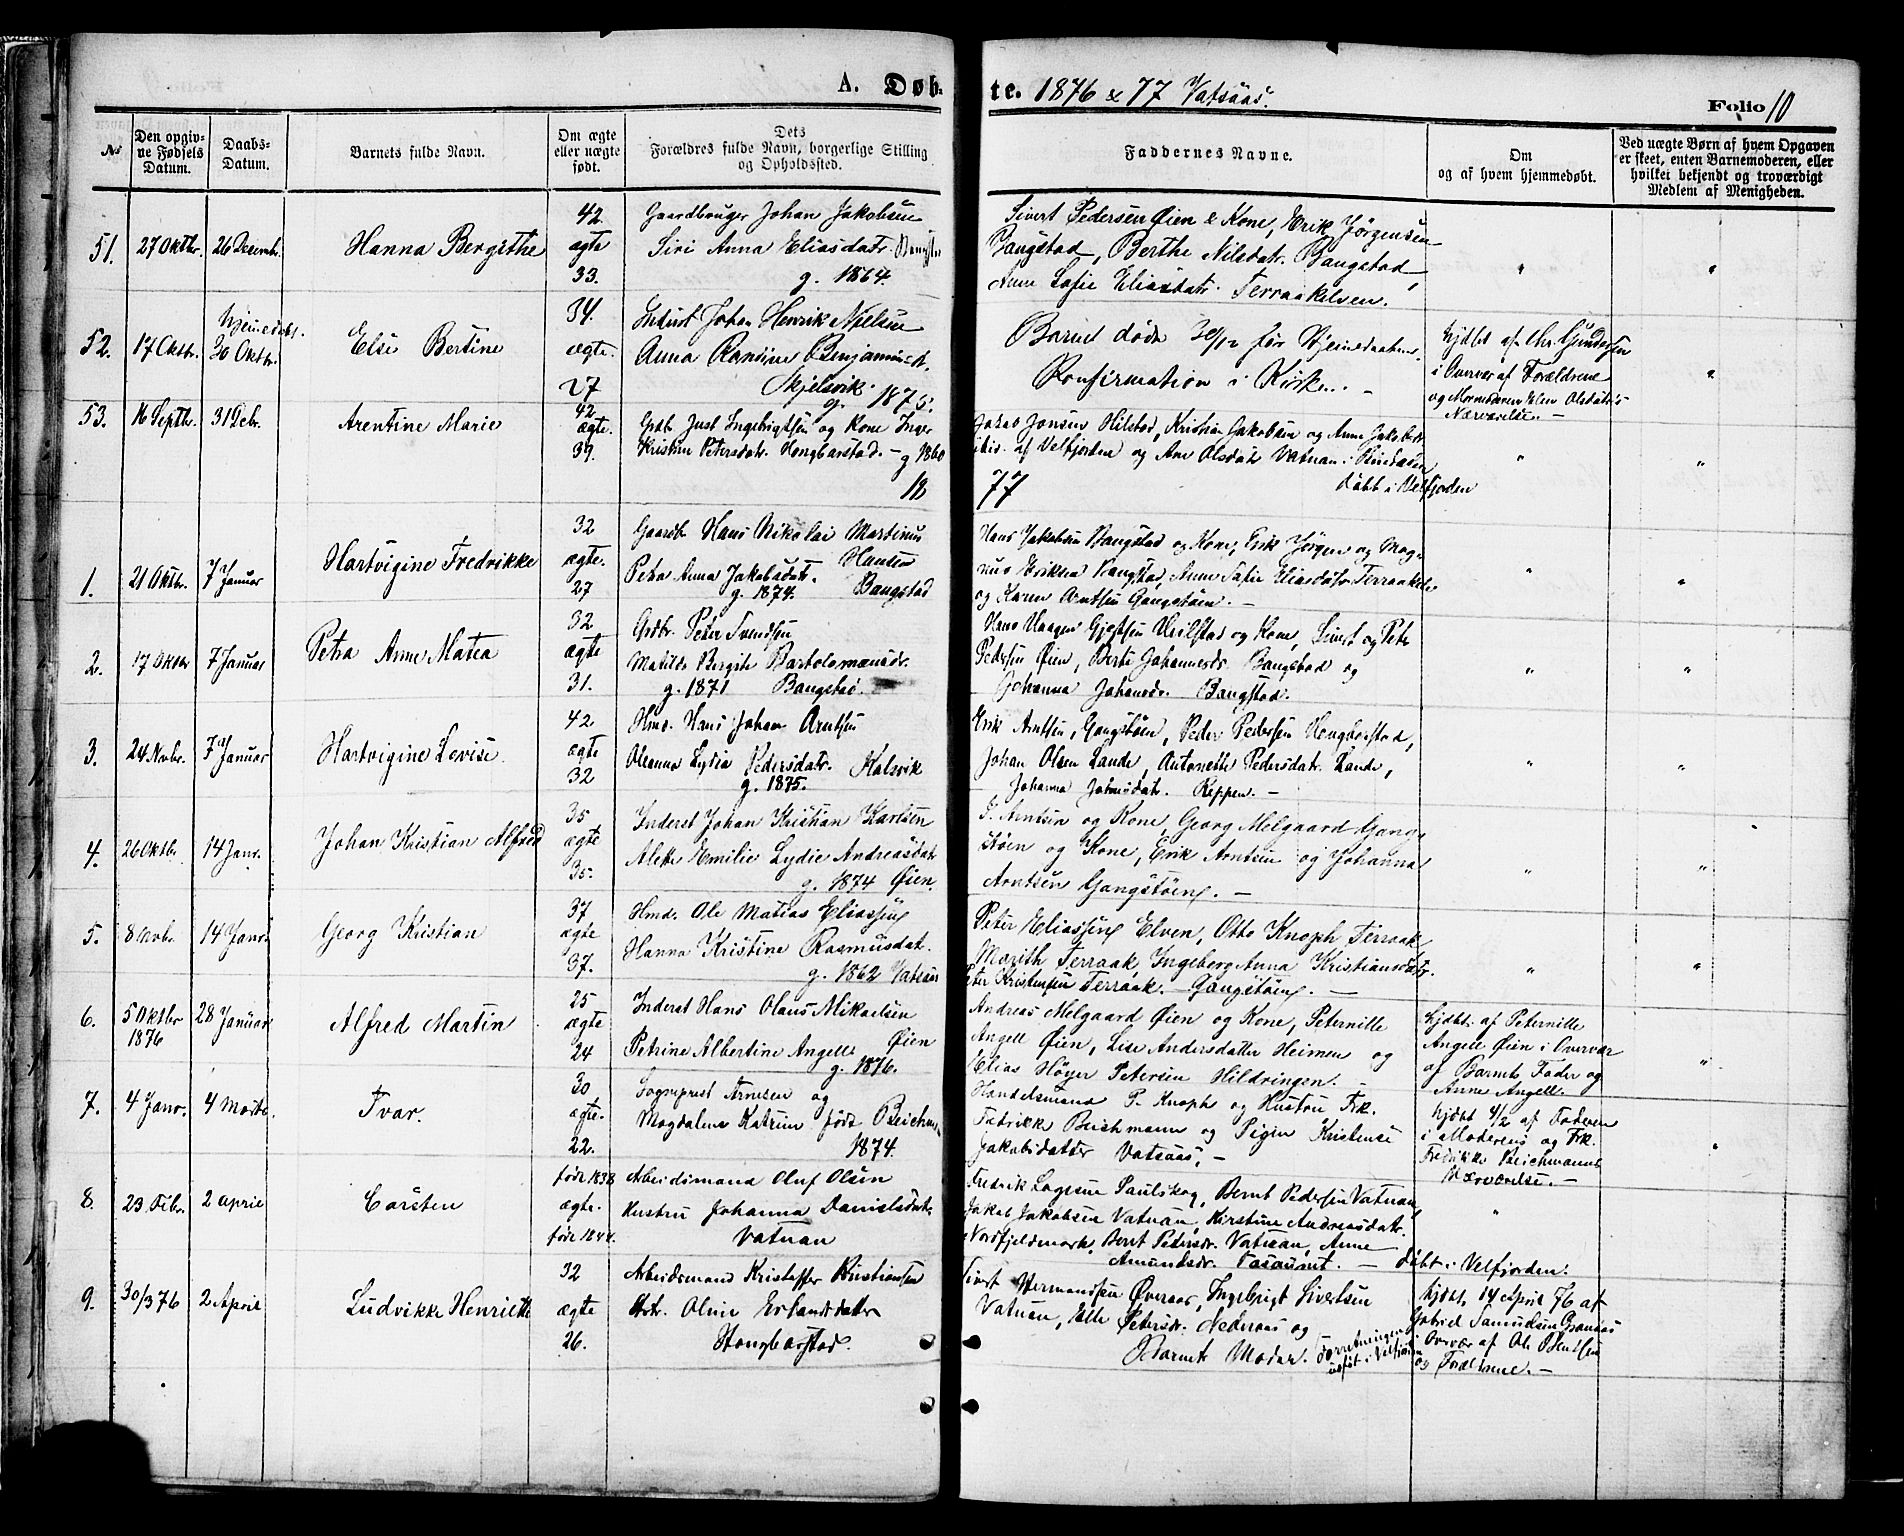 A. Døb-
te. 1876 & 77 Vatsaas.
Folio 10
No
Den opgiv-
ne Fødsels
Datum.
Daabs-
Datum.
Barnets fulde Navn.
Om ægte
eller uægte
født.
Dets
Forældres fulde Navn, borgerlige Stilling
og Opholdssted.
Faddernes Navne.
Om
og af hvem hjemmedøbt.
Ved uægte Børn af hvem Opgaven
er skeet, enten Barnemoderen, eller
hvilket bekjendt og troværdigt
Medlem af Menigheden.
51. 27 Oktbr. 26 Decembr. Hanna Bergithe
42.
ægte
33.
Gaardbruger Johan Jakobsen
Siri Anna Eliasdatr.
g. 1864.
Sivert Pedersen Øien & Kone, Erik Jørgensen
Bangstad, Berthe Nilsdatr. Bangstad,
Anne Sofie Eliasdatr. Terraakelven.
" "
52. 17 Oktbr. hjemedøbt. 30 Oktbr. Else Bertine
34.
ægte.
27
Inderst Johan Henrik Nielsen
Anna Benjaminsd.
Skjelsvik.
g. 1875.
Barnet døde 30/12 før Hjemedaabens
Konfirmation i Kirken. -
hjdbt af Chr. Gundersen
i Overvær af Forældrene
og Mormoderen Elen Olsdatr's
Nærværelse. -
"
53. 16 Septbr. 31 Debr. Arentine Marie
42
ægte.
39.
Grdbr. Just Ingebrigtsen og Kone Inger
Kristine Petersdatr. Hongbarstad. - g 1860
Jakob Jonsen Hilstad, Kristian Jakobsen og Anne Jakobsdr
af Velfjorden og Ane Olsdatr Vatnan i
Døbt i Velfjorden
" "
18 77
1. 21 Oktbr. 7 Januar Hartvigine Fredrikke
32
ægte.
27
Gaardb Hans Nikolai Martinus
Hansen
Petra Anna Jakobsdatr.
g. 1874. Bangstad
Hans Jakobsen Bangstad og Kone, Erik Jørgen og Mag-
nus Eriksen Bangstad, Anne Sofie Eliasdatr Terraakelv.
og Karen Arntsen Gangstøen. -
" "
2. 17 Oktbr 7 Januar Petra Anne Matea
32
ægte
31.
Grdbr. Peter Svendsen
Matilde Bergite Bartolomæusdr.
g. 1871 Bangstad.
Hans Haagen Gjertsen Hilstad og Kone, Sivert og Peter
Pedersen Øien, Berte Johannesdr. Bangstad og
Johanna Johansdr. Bangstad.
" "
3. 24 Novbr. 7 Januar Hartvigine Levise
42
ægte
32
Hmd. Hans Johan Arntsen
Oleanna Lydia Pedersdatr. Kalsvik
g. 1875.
Erik Arntsen, Gangstøen, Peder Pedersen Hongbarstad,
Johan Olsen Lande, Antonette Pedersdatr. Lande,
Johanna Johnsdatr. Reppen. -
" "
4. 26 Oktbr 14 Janr. Johan Kristian Alfred
35
ægte
35.
Inderst Johan Kristian Karlsen
Alette Emilie Lydie Andreasdatr
g. 1874 Øien.
Arntsen og Kone, Georg Melgaard Gang-
støen og Kone, Erik Arntsen og Johanna
Arntsen Gangstøen. -
" "
5. 8 Novbr. 14 Janr. Georg Kristian
37
ægte
37.
Hmd. Ole Matias Eliassen
Hanna Kristine Rasmusdat.
g. 1862 Vatsaas
Peter Eliassen Elven, Otto Knoph Terraak
Marith Terraak, Ingeborg Anna Kristiansdatr.
Peter Kristensen Terraak. - Gangstøen. -
" "
6. 5 Oktbr 1876 28 Januar Alfred Martin
25
ægte
24
Inderst Hans Olaus Mikaelsen
Øien
Petrine Albertine Angell
g. 1876.
Andreas Melgaard Øien og Kone, Peternille
Angell Øien, Lise Andersdatter Heimen og
Elias Høyer Petersen Hildringen. -
hjdbt. af Peternille
Angell Øien i Overvær
af Barnets Fader og
Anne Angell.
"
7. 4 Janr. 4 Marts Ivar.
30
ægte.
22.
Sognepræst Arnesen og
Magdalena Katrine født Beichm
1874.
Handelsmand P. Knoph og Hustru Frk.
Fredrikke Beichmann og Pigen Kristense
Jakobsdatter Vatsaas. -
hjdbt 4/2 af Faderen
i Moderens og Frk.
Fredrikke Beichmanns
Nærværelse. -
"
8. 23 Febr. 2 April Carsten
født 1838
ægte.
født 1844.
Arbeidsmand Oluf Olsen
Hustru Johanna Danielsdatr.
Vatnan
Fredrik Paulskog, Bernt Pedersen Vatnan,
Jakob Jakobsen Vatnan, Kirstine Andreasdatr.
Nordfjeldmark, Berit Pedersdr. Vatnan, Anne
Amundsdr. - Døbt i Velfjorden.
"
9. 30/3 76 2 April Ludvikke Henriette
32
ægte
26.
Arbeidsmand Kristoffer Kristiansen
Hstr. Oline Erlandsdatter
Hongbarstad.
Sivert Hermansen Øveraas, Ingebrigt Sivertsen
Vatnan, Elle Petersdr. Nederaas og
Barnets Moder. - Forretningen
udført i Velfjorden
hjdbt. 14 April 76 af
Gabriel Samuelsen
Overvær af Ole Bentsen
og Forældrene. -